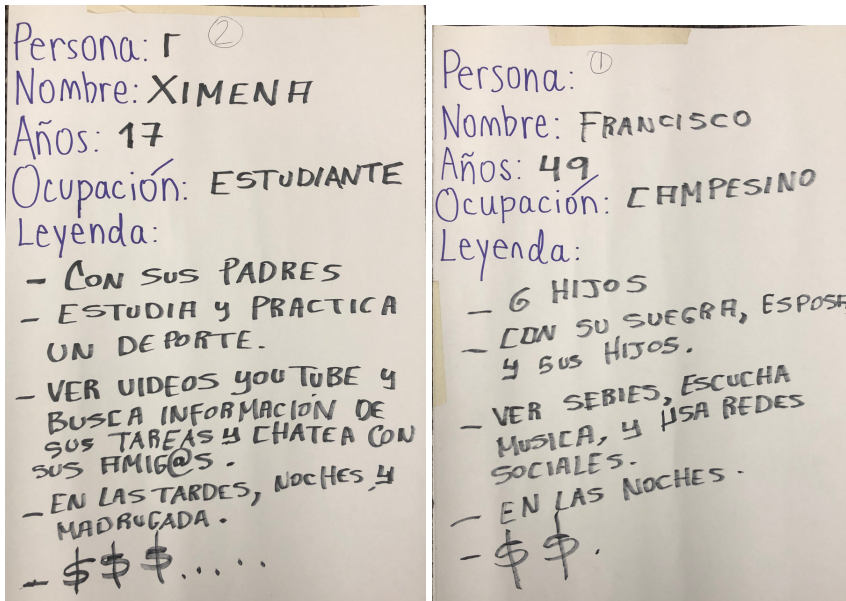 Persona: r ②
Nombre: XIMENA
Años: 17
Ocupación: ESTUDIANTE
Leyenda:
- CON SUS PADRES
- ESTUDIA Y PRACTICA
UN DEPORTE.
- VER VIDEOS YOUTUBE Y
BUSCA INFORMACIÓN DE
SUS TAREAS Y CHATEA CON
SUS AMIG@S.
- EN LAS TARDES, NOCHES Y
MADRUGADA.
- $ $ $ . . . . .
Persona: ①
Nombre: FRANCISCO
Años: 49
Ocupación: CAMPESINO
Leyenda:
- 6 HIJOS
- CON SU SUEGRA, ESPOSA
Y SUS HIJOS.
- VER SERIES, ESCUCHA
MUSICA, Y USA REDES
SOCIALES.
- EN LAS NOCHES.
- $ $ .